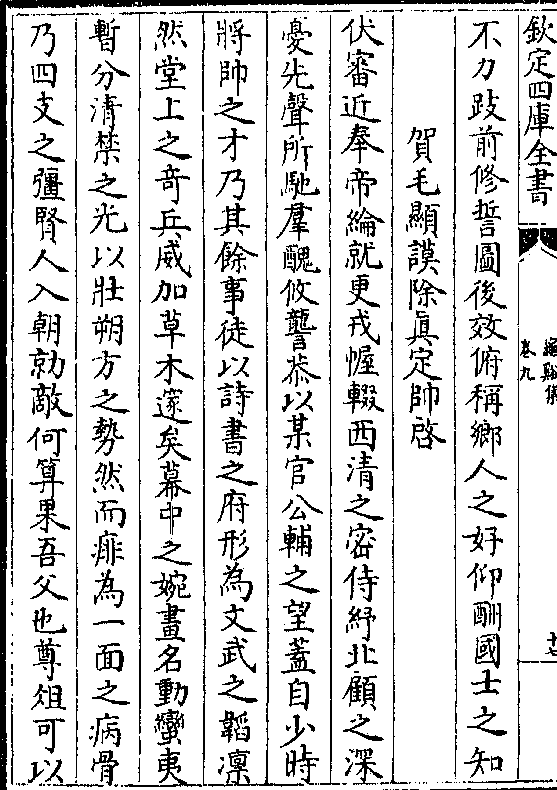 欽定四庫全書
卷九
不力跂前修誓圖後效俯稱鄉人之好仰酬國士之知
賀毛顯謨除真定帥啓
伏審近奉帝綸就更戎幄輟西清之密侍紓北顧之深
憂先聲所馳羣醜攸讋恭以某官公輔之望蓋自少時
將帥之才乃其餘事徒以詩書之府形為文武之韜凛
然堂上之竒兵威加草木邃矣幕中之婉畫名動蠻夷
暫分清禁之光以壯朔方之勢然而痱為一面之病骨
乃四支之彊賢人入朝勍敵何算果吾父也尊俎可以